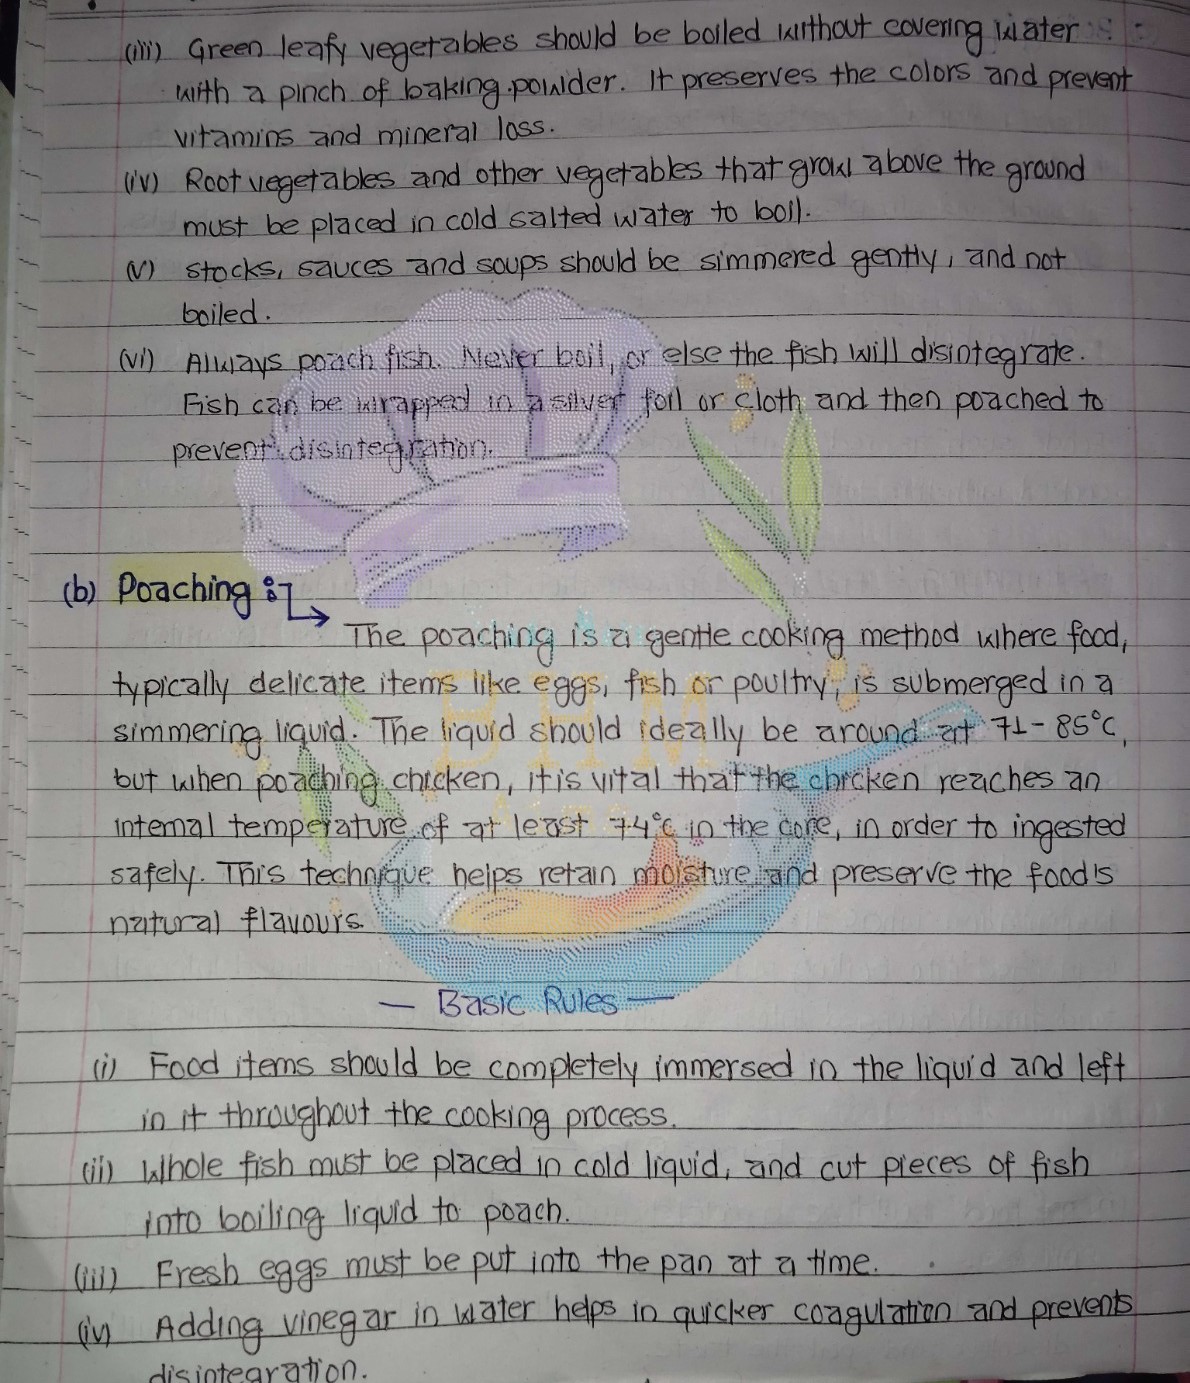 (iii) Green leafy vegetables should be boiled without covering water
with a pinch of baking powder. It preserves the colors and prevent
vitamins and mineral loss.
(iv) Root vegetables and other vegetables that grow above the ground
must be placed in cold salted water to boil.
(v) stocks, sauces and soups should be simmered gently, and not
boiled.
(vi) Always poach fish. Never boil, or else the fish will disintegrate.
Fish can be wrapped in a silver foil or cloth and then poached to
prevent disintegration.
(b) Poaching :↳
The poaching is a gentle cooking method where food,
typically delicate items like eggs, fish or poultry, is submerged in a
simmering liquid. The liquid should ideally be around at 71-85°C,
but when poaching chicken, it is vital that the chicken reaches an
internal temperature of at least 74°c in the core, in order to ingested
safely. This technique helps retain moisture and preserve the food's
natural flavours.
— Basic Rules —
(i) Food items should be completely immersed in the liquid and left
in it throughout the cooking process.
(ii) Whole fish must be placed in cold liquid, and cut pieces of fish
into boiling liquid to poach.
(iii) Fresh eggs must be put into the pan at a time.
(iv) Adding vinegar in water helps in quicker coagulation and prevents
disintegration.